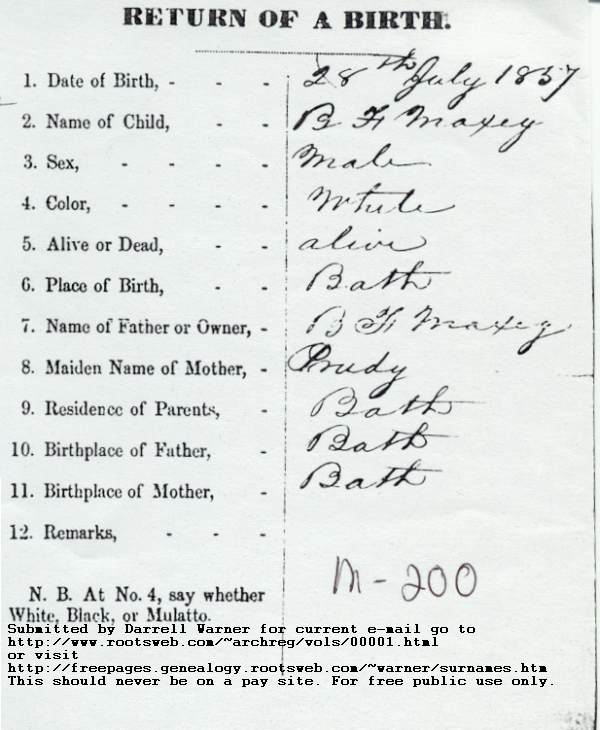 RETURN OF A BIRTH.
1. Date of Birth, - - - 28th July 1857
2. Name of Child, - - B F Maxey
3. Sex, - - - - Male
4. Color, - - - - White
5. Alive or Dead, - - alive
6. Place of Birth, - - Bath
7. Name of Father or Owner, - B F Maxey
8. Maiden Name of Mother, - Prudy
9. Residence of Parents, - Bath
10. Birthplace of Father, - Bath
11. Birthplace of Mother, - Bath
12. Remarks, - - -
M-200
N. B. At No. 4, say whether
White, Black, or Mulatto.
Submitted by Darrell Warner for current e-mail go to
http://www.rootsweb.com/~archreg/vols/00001.html
or visit
http://freepages.genealogy.rootsweb.com/~warner/surnames.htm
This should never be on a pay site. For free public use only.